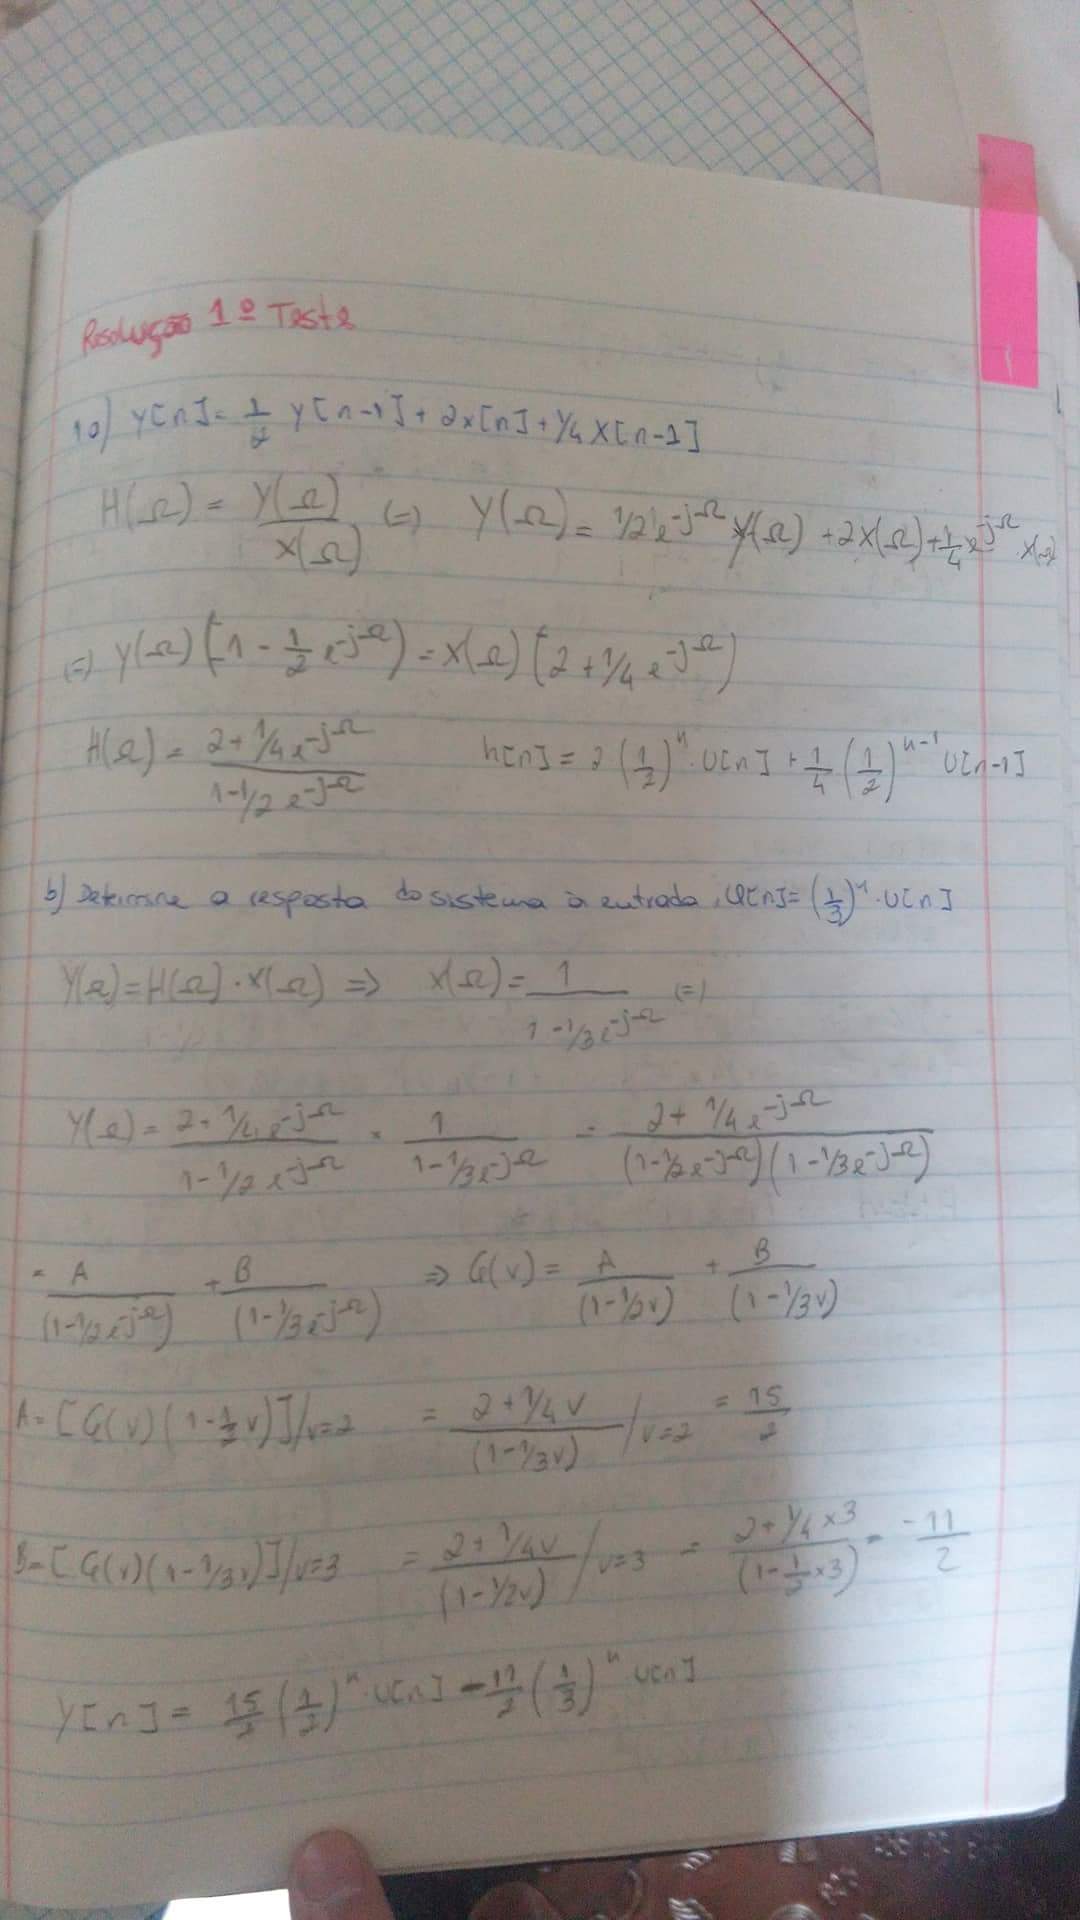 Resolução 1º Teste
1a) y[n] = 1/2 y[n-1] + 2x[n] + 1/4 x[n-1]
H(Ω) = Y(Ω)/X(Ω) (=) Y(Ω) = 1/2 e^-jΩ Y(Ω) + 2X(Ω) + 1/4 e^-jΩ X(Ω)
(=) Y(Ω) (1 - 1/2 e^-jΩ) = X(Ω) (2 + 1/4 e^-jΩ)
H(Ω) = (2 + 1/4 e^-jΩ)/(1 - 1/2 e^-jΩ) h[n] = 2 (1/2)^n · u[n] + 1/4 (1/2)^n-1 u[n-1]
b) Determine a resposta do sistema à entrada, x[n] = (1/3)^n · u[n]
Y(Ω) = H(Ω) · X(Ω) => X(Ω) = 1/(1 - 1/3 e^-jΩ) (=)
Y(Ω) = (2 + 1/4 e^-jΩ)/(1 - 1/2 e^-jΩ) × 1/(1 - 1/3 e^-jΩ) = (2 + 1/4 e^-jΩ)/((1 - 1/2 e^-jΩ)(1 - 1/3 e^-jΩ))
= A/(1 - 1/2 e^-jΩ) + B/(1 - 1/3 e^-jΩ) => G(v) = A/(1 - 1/2v) + B/(1 - 1/3v)
A = [G(v)(1 - 1/2 v)]/v=2 = (2 + 1/4 v)/(1 - 1/3v) /v=2 = 15/2
B = [G(v)(1 - 1/3v)]/v=3 = (2 + 1/4v)/(1 - 1/2v) /v=3 = (2 + 1/4 × 3)/(1 - 1/2 × 3) = -11/2
y[n] = 15/2 (1/2)^n · u[n] - 11/2 (1/3)^n u[n]